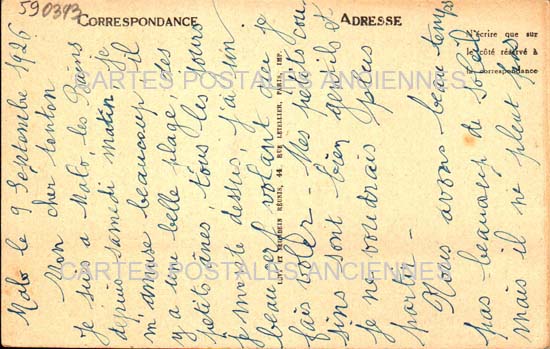 590393
CORRESPONDANCE
ADRESSE
N'écrire que sur
le côté réservé à
la correspondance
CARTES POSTALES ANCIENNES
CARTES POSTALES ANCIENNES
RÉUNIS, 44, RUE LETELLIER, PARIS, IMP.
Malo le 9 Septembre 1926
Mon cher tonton
Je suis a Malo les Bains
depuis samedi matin je
m'amuse beaucoup il
y a une belle plage des
petits ânes tous les jours
je monte dessus, j'ai un
beau cerf volant que je
fais voler - Mes petits cou
sins sont bien gentils et
je ne voudrais plus
partir -
Nous avons beau temps
pas beaucoup de soleil
mais il ne pleut pas